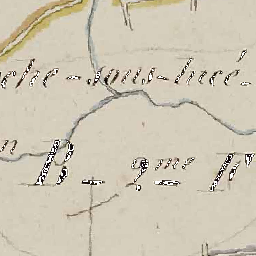 che-sous-lucé
n
B - 2me F